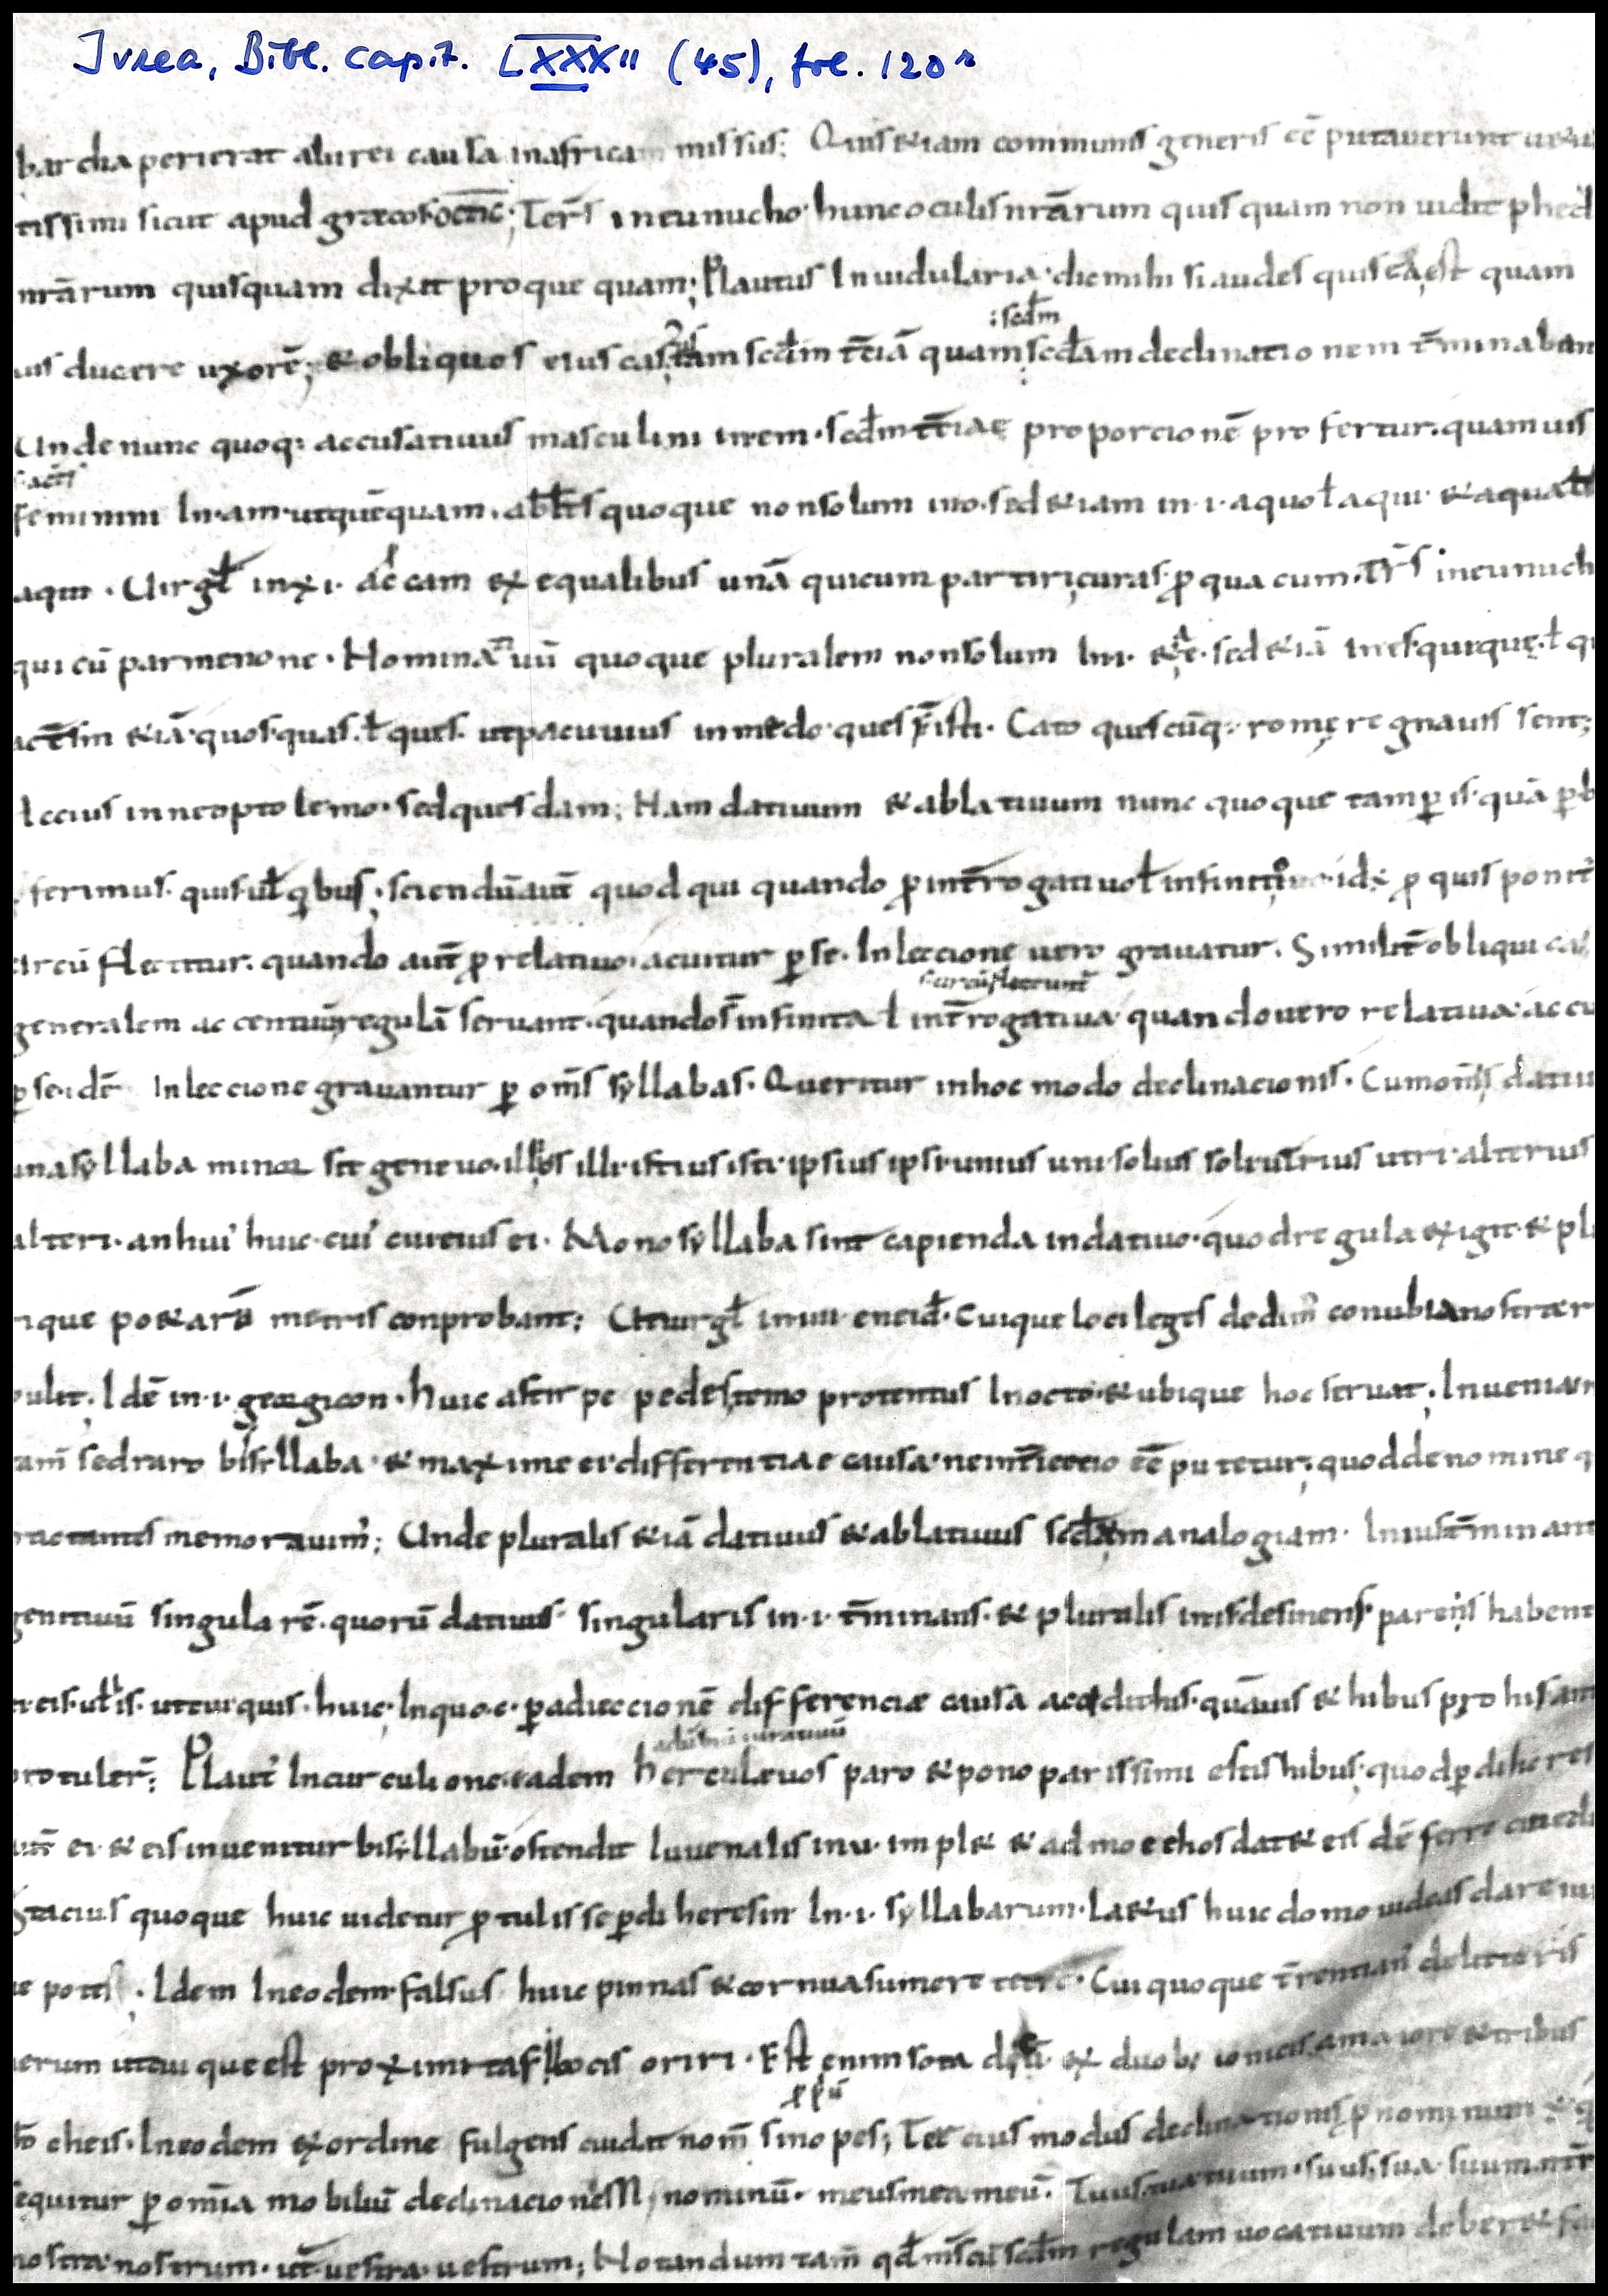 Ivrea, Bibl. capit. LXXXII (45), fol. 120r
bar cha perierat alii rei causa inafricam missus; Quis &iam communis generis eē putaverunt uetus
tissimi sicut apud grecos octic; Ters ineunucho hunc oculis nrārum quis quam non uidit phed
nrārum quisquam dixit pro que quam; Plautus Inuidularia dic mihi si audes quis ea est quam
uis ducere uxorē; & obliquos eius
:scdm
casus tam scdm tciā quam scdam declinatio nem tminaban
Unde nunc quoq: accusatiuus masculini inem scdm tciae proporcionē pro fertur. quamuis
feminini In am ut quē quam. ablts quoque non solum ino. sed &iam in i aquo ł aqui & aqua ł
aqui. Uirgł in xi. ac cam ex equalibus unā quicum partiri curas ꝓ qua cum. Trs ineunuch
qui cū parmenone. Nominatiuū quoque pluralem non solum In i & e sed &iā ines qui que. ł qu
actsm &iā quos quas. ł ques. ut pacuuius in medo ques ÷ isti. Cato ques cūq: rome regnauissent;
Accius in neoptolemo. sed ques dam; Nam datiuum & ablatiuum nunc quoque tam ꝑ is quā ꝑ b
ferimus. quis uł q bus; sciendū aut quod qui quando ꝓ introgatiuo ł infinitiuo id÷ ꝓ quis ponit
circū flectitur. quando aut ꝓ relatiuo. acuitur ꝑ se. In leccione uero grauatur. Similit obliqui ca
circū flectunt
generalem accentuū regulā seruant. quando st infinita ł introgatiua quando uero relatiua accu
ꝑ se idē In leccione grauantur ꝑ oms syllabas. Queritur in hoc modo declinacionis. Cum omis datiu
una syllaba minor sit genetiuo. illius illi istius isti ipsius ipsi unius uni solius soli utrius utri alterius
alteri. an hui' huic cui' cui eius ei. Monosyllaba sint capienda in datiuo quod regula exigit & plu
rique po&arū metris conprobant; Ut uirgł in uii eneid. Cuique loci leges dedim' conubia nostra r
pulit. Idē in i. georgicon. huic a stirpe pedes temo protentus In octo & ubique hoc seruat. Inueniun
tam sed raro bisyllaba & maxime ei differentiae causa ne interieccio eē putetur; quod de nomine q
tractantes memorauim'; Unde pluralis &iā datiuus & ablatiuus scdm analogiam In ius tminant
genitiuū singularē. quorū datiuus singularis in i tminans. & pluralis in is desinens parens habent
ei eis. uł is. ut cui quis. huic. In quo c ꝑ adieccionē differenciae causa accidit his. quāuis & hibus pro his an
protuler; Plaut' In curculione. eadem herc uos paro & pono parissimi estis hibus. quod ꝑ diheres
aut ei & eis inuenitur bisyllabū ostendit Iuuenalis in u. impl& & ad moechos dat& eis dē ferre cinedi
Stacius quoque huic uidetur ꝓ tulisse ꝑ diheresin In i. syllabarum. La&us huic domo uideas dare iu
re potes. Idem In eodem falsus huic pinnas & cornua sumere Cui quoque trentian' de litteris
uerum ut cui que est proximitas locis oriri. Est enim sota ex duob; ionicis a maiore & tribus
tro cheis. In eodem ex ordine fulgens cui dat nom sinopes; Ter cius modus declinationis ꝓ nominum ÷ q
sequitur ꝑ omia mobiliū declinacionem nominū. meus mea meū. Tuus tua tuum. suus sua suum. nr
nostra nostrum. ut uestra uestrum; Notandum tam qd scdm regulam uocatiuum deber&